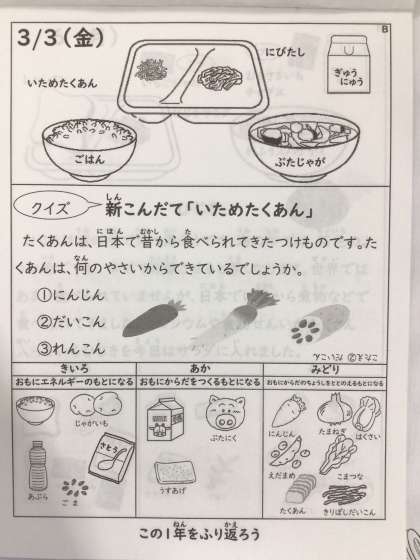 B
3/3(金)
にびたし
ぎゅう
にゅう
いためたくあん
ごはん
ぶたじゃが
クイズ
新こんだて「いためたくあん」
しん
たくあんは、日本で昔から食べられてきたつけものです。た
にほん むかし た
くあんは、何のやさいからできているでしょうか。
なん
①にんじん
②だいこん
③れんこん
こたえ② だいこん
きいろ
おもにエネルギーのもとになる
あか
おもにからだをつくるもとになる
みどり
おもにからだのちょうしをととのえるもとになる
じゃがいも
さとう
あぶら
ごま
ぶたにく
うすあげ
にんじん
たまねぎ
はくさい
えだまめ
こまつな
たくあん
きりぼしだいこん
この1年をふり返ろう
ねん かえ